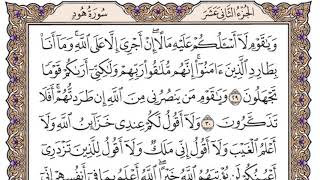 الجزء الثاني عشر
سورة هود
وَيَٰقَوْمِ لَآ أَسْـَٔلُكُمْ عَلَيْهِ مَالًا إِنْ أَجْرِىَ إِلَّا عَلَى ٱللَّهِ وَمَآ أَنَا۠
بِطَارِدِ ٱلَّذِينَ ءَامَنُوٓا۟ إِنَّهُم مُّلَٰقُوا۟ رَبِّهِمْ وَلَٰكِنِّىٓ أَرَىٰكُمْ قَوْمًا
تَجْهَلُونَ ٢٩ وَيَٰقَوْمِ مَن يَنصُرُنِى مِنَ ٱللَّهِ إِن طَرَدتُّهُمْ أَفَلَا
تَذَكَّرُونَ ٣٠ وَلَآ أَقُولُ لَكُمْ عِندِى خَزَآئِنُ ٱللَّهِ وَلَآ
أَعْلَمُ ٱلْغَيْبَ وَلَآ أَقُولُ إِنِّى مَلَكٌ وَلَآ أَقُولُ لِلَّذِينَ تَزْدَرِىٓ
أَعْيُنُكُمْ لَن يُؤْتِيَهُمُ ٱللَّهُ خَيْرًا ٱللَّهُ أَعْلَمُ بِمَا فِىٓ أَنفُسِهِمْ إِنِّىٓ